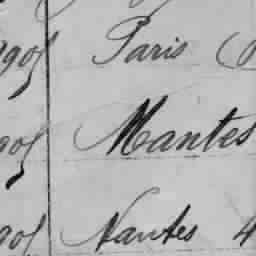 1905 Paris
1905 Mantes
1905 Nantes 4